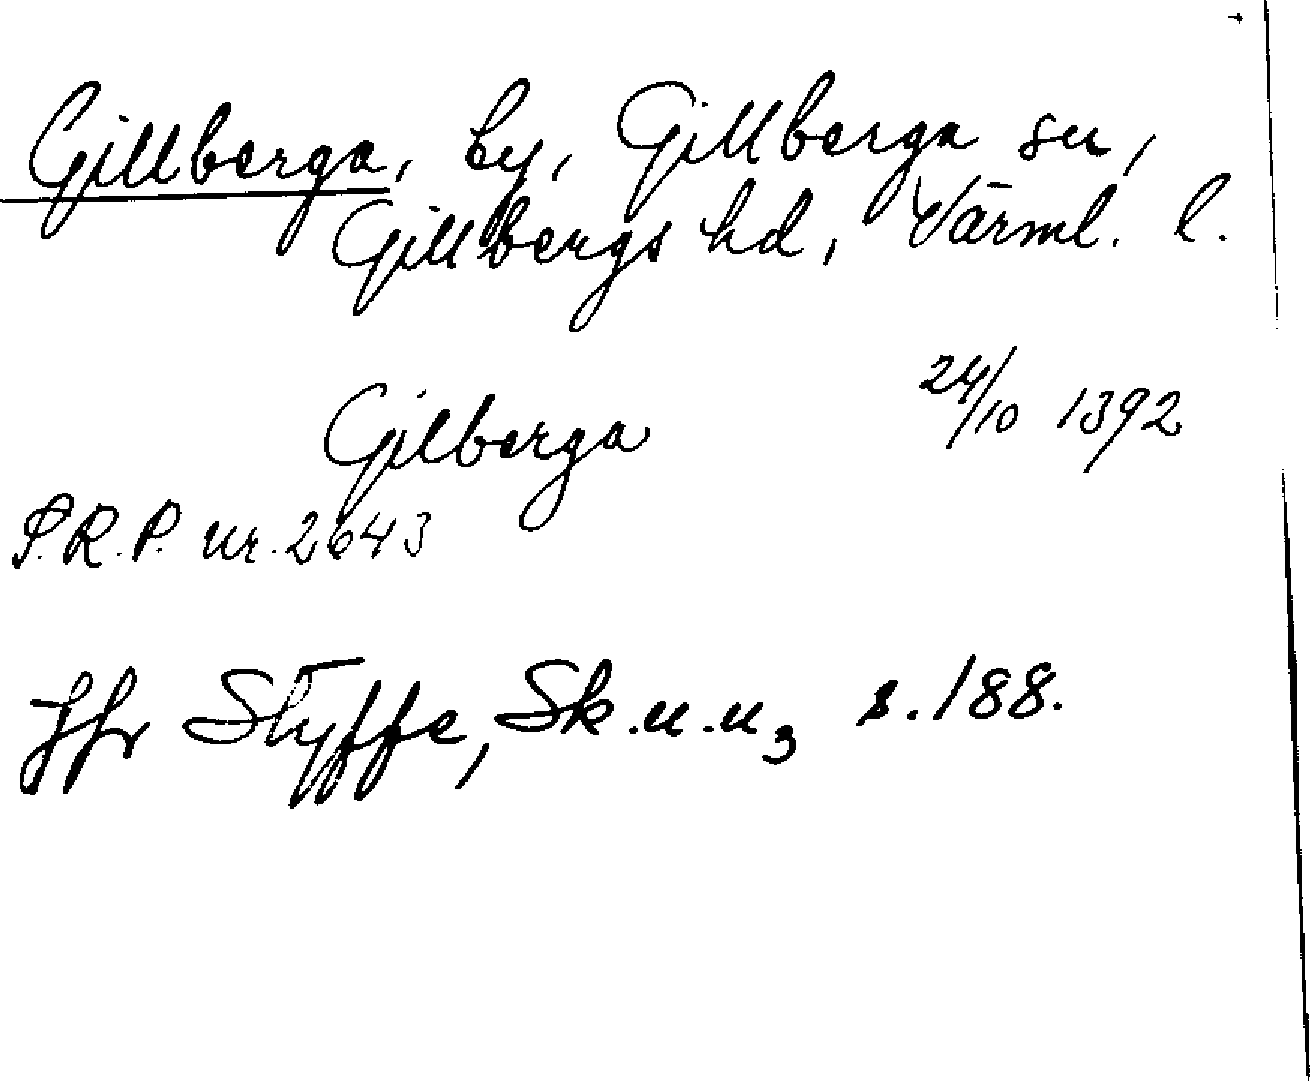 Gillberga, by, Gillberga sn,
Gillbergs hd, Värml. l.
Gilberga 24/10 1392
S.R.P. nr. 2643
Jfr Styffe, Sk.u.u₃ s. 188.